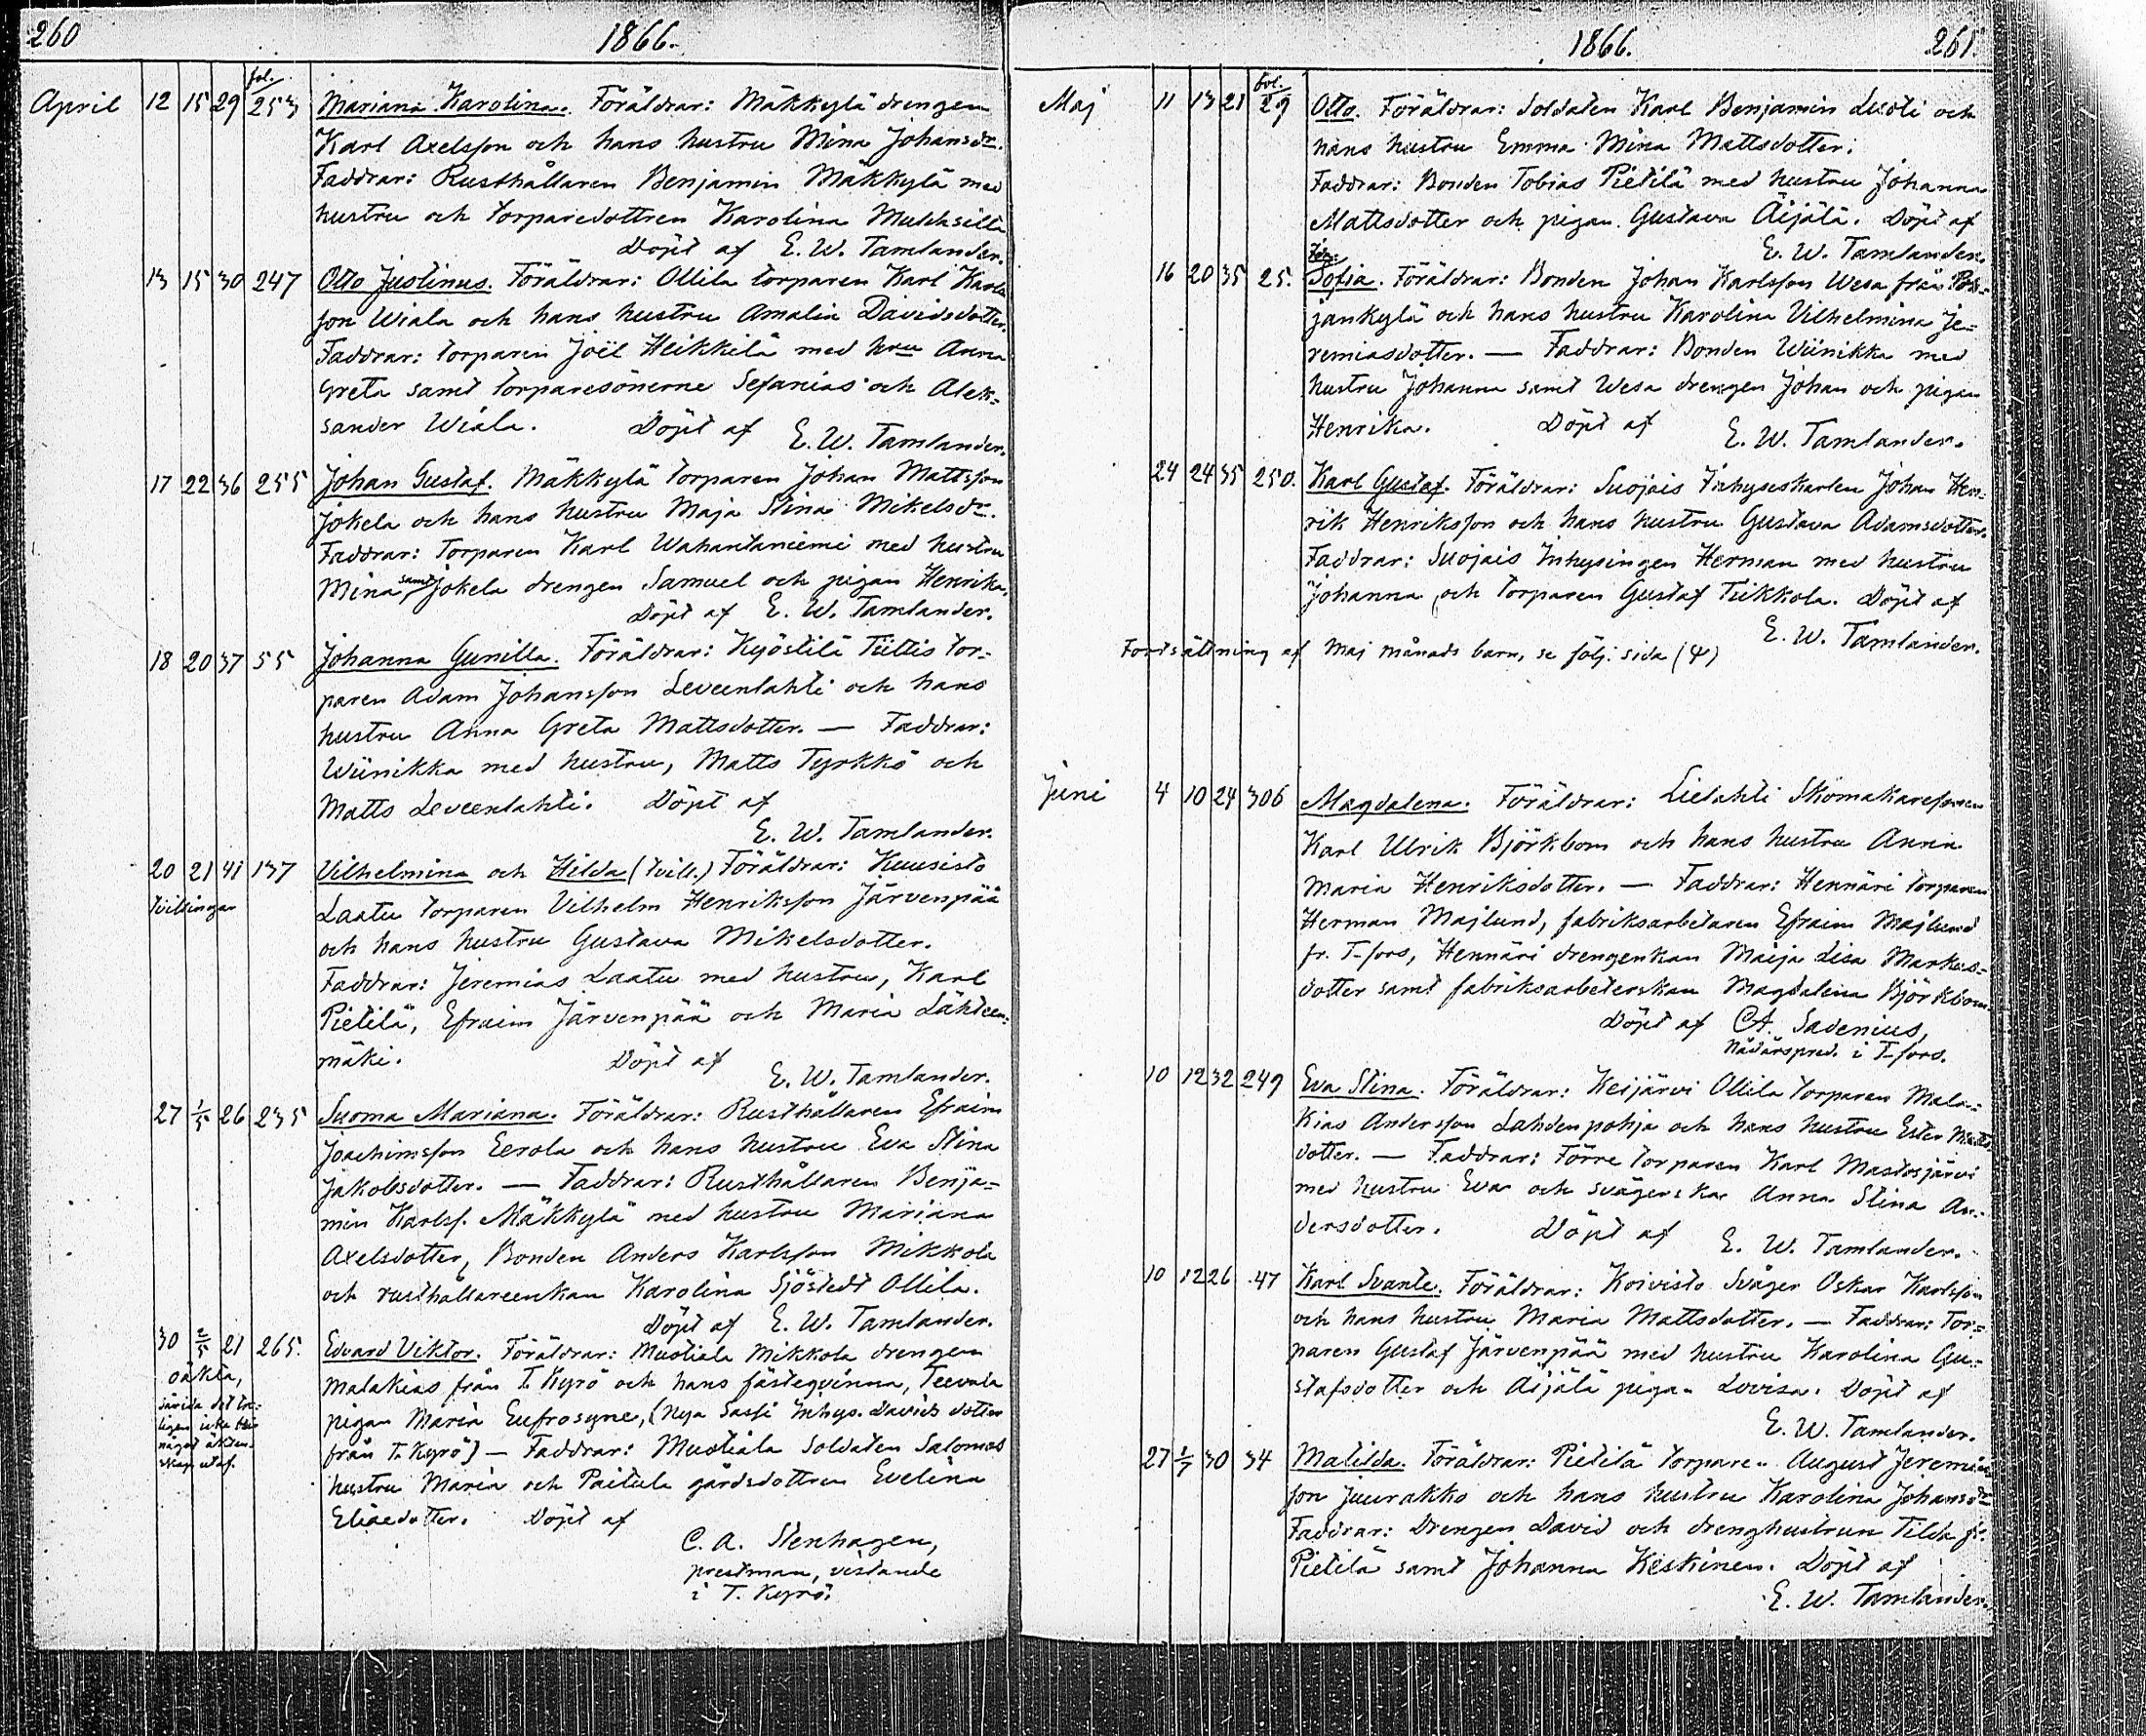 260
1866.
April 12 15 29 fol. 253 Mariana Karolina. Föräldrar: Mäkkylä drengen
Karl Axelsson och hans hustru Mina Johansdr.
Faddrar: Rusthållaren Benjamin Mäkkylä med
hustru och torparedottren Karolina
Döpt af E. W. Tamlander.
13 15 30 247 Otto Justinus. Föräldrar: Ollila torparen Karl Karls
son Wiala och hans hustru Amalia Davidsdotter.
Faddrar: torparen Joël Heikkilä med hru Anna
Greta samt torparesönerne Sefanias och Alek=
sander Wiala. Döpt af E. W. Tamlander.
17 22 36 255 Johan Gustaf. Mäkkylä torparen Johan Mattsson
Jokela och hans hustru Maja Stina Mikelsdr.
Faddrar: Torparen Karl Wahantaniemi med hustru
Mina samt Jokela drengen Samuel och pigan Henrika.
Döpt af E. W. Tamlander.
18 20 37 55 Johanna Gunilla. Föräldrar: Kyöstilä Tiittis tor=
paren Adam Johansson Leveenlahti och hans
hustru Anna Greta Mattsdotter. — Faddrar:
Wiinikka med hustru, Matts Tyrkkö och
Matts Leveenlahti. Döpt af
E. W. Tamlander.
20 21 41 137 Vilhelmina och Hilda (tvill.) Föräldrar: Kuusisto
tvillingar
Laatu torparen Vilhelm Henriksson Järvenpää
och hans hustru Gustava Mikelsdotter.
Faddrar: Jeremias Laatu med hustru, Karl
Pietilä, Efraim Järvenpää och Maria Lähteen=
mäki. Döpt af
E. W. Tamlander.
27 1/5 26 235 Suoma Mariana. Föräldrar: Rusthållaren Efraim
Joachimsson Eerola och hans hustru Eva Stina
Jakobsdotter. — Faddrar: Rusthållaren Benja=
min Karlss. Mäkkylä med hustru Mariana
Axelsdotter, Bonden Anders Karlsson Mikkola
och rusthållareenkan Karolina Sjöstedt Ollila.
Döpt af E. W. Tamlander.
30 2/5 21 265. Edvard Viktor. Föräldrar: Muotiala Mikkola drengen
oäkta,
Malakias från T. Kyrö och hans fästeqvinna, Teevala
pigan Maria Eufrosyne, (Nya Sassi Inhys. Davids dotter
från T. Kyrö) — Faddrar: Muotiala Soldaten Salomos
hustru Maria och Paitula gårdsdottren Evelina
Eliaedotter. Döpt af
C. A. Stenhagen,
prestman, vistande
i T. Kyrö.
1866.
261.
Maj 11 13 21 fol. 29 Otto. Föräldrar: Soldaten Karl Benjamin Luoti och
hans hustru Emma Mina Mattsdotter.
Faddrar: Bonden Tobias Pietilä med hustru Johanna
Mattsdotter och pigan Gustava Äijälä. Döpt af
E. W. Tamlander.
16 20 35 25. Sofia. Föräldrar: Bonden Johan Karlsson Wesa från Poh=
jankylä och hans hustru Karolina Vilhelmina Je=
remiasdotter. — Faddrar: Bonden Wiinikka med
hustru Johanna samt Wesa drengen Johan och pigan
Henrika. Döpt af E. W. Tamlander.
24 24 35 250. Karl Gustaf. Föräldrar: Suojois Inhyseskarlen Johan Hen=
rik Henriksson och hans hustru Gustava Adamsdotter.
Faddrar: Suojois Inhysingen Herman med hustru
Johanna och torparen Gustaf Tiikkola. Döpt af
E. W. Tamlander.
Fortsättning af Maj månads barn, se följ. sida (4)
Juni 4 10 24 306 Magdalena. Föräldrar: Lielahti Skomakaresonen
Karl Ulrik Björkbom och hans hustru Anna
Maria Henriksdotter. — Faddrar: Hennäri torparen
Herman Majlund, fabriksarbetaren Efraim Majlund
fr. T-fors, Hennäri drengenkan Maija Lisa Markus=
dotter samt fabriksarbeterskan Magdalena Björkbom.
Döpt af C.A. Sadenius,
Nådårspred. i T-fors.
10 12 32 249 Eva Stina. Föräldrar: Keijärvi Ollila torparen Mala=
kias Andersson Lahdenpohja och hans hustru Ester Matts
dotter. — Faddrar: Förre torparen Karl Mastosjärvi
med hustru Eva och svägerskan Anna Stina An=
dersdotter. Döpt af E. W. Tamlander.
10 12 26 47 Karl Svante. Föräldrar: Koivisto Svåger Oskar Karlsson
och hans hustru Maria Mattsdotter. — Faddrar: Tor=
paren Gustaf Järvenpää med hustru Karolina Gu=
stafsdotter och Äijälä pigan Lovisa. Döpt af
E. W. Tamlander.
27 1/7 30 34 Matilda. Föräldrar: Pietilä torparen August Jeremias
son Juurakko och hans hustru Karolina Johansdr
Faddrar: Drengen David och drenghustrun Tilda fr.
Pietilä samt Johanna Keskinen. Döpt af
E. W. Tamlander.